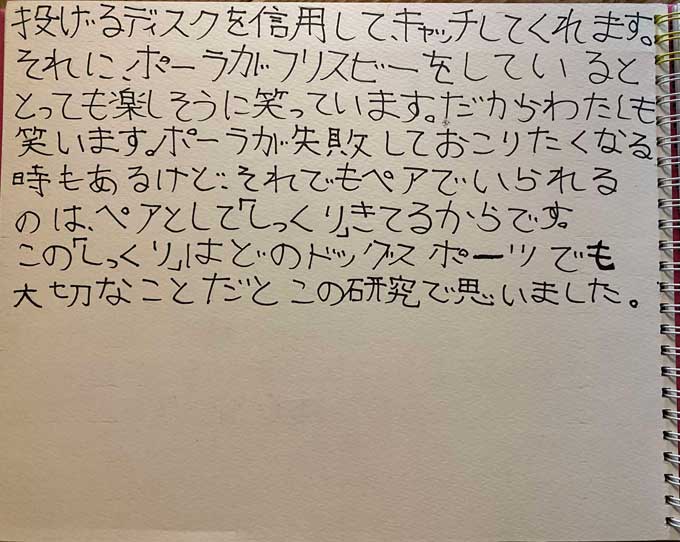 投げるディスクを信用して、キャッチしてくれます。
それに、ポーラがフリスビーをしていると
とっても楽しそうに笑っています。だからわたしも
笑います。ポーラが失敗しておこりたくなる
時もあるけど、それでもペアでいられる
のは、ペアとして「しっくり」きてるからです。
この「しっくり」はどのドッグスポーツでも
大切なことだとこの研究で思いました。